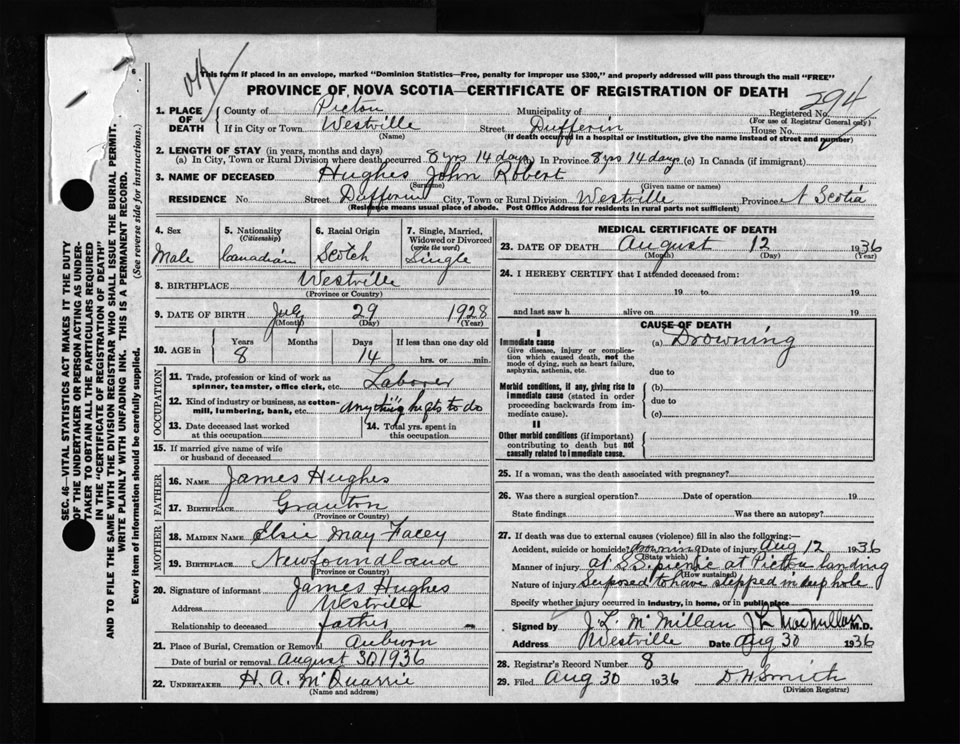 OK
This form if placed in an envelope, marked "Dominion Statistics—Free, penalty for improper use $300," and properly addressed will pass through the mail "FREE"
PROVINCE OF NOVA SCOTIA—CERTIFICATE OF REGISTRATION OF DEATH
294
1. PLACE OF DEATH
County of Pictou Municipality of Registered No.
(For use of Registrar General only)
If in City or Town Westville Street Dufferin House No.
(Name) (If death occurred in a hospital or institution, give the name instead of street and number)
2. LENGTH OF STAY (in years, months and days)
(a) In City, Town or Rural Division where death occurred 8 yrs 14 days (b) In Province 8 yrs 14 days (c) In Canada (if immigrant)
3. NAME OF DECEASED Hughes John Robert
(Surname) (Given name or names)
RESIDENCE No. Street Dufferin City, Town or Rural Division Westville Province N Scotia
(Residence means usual place of abode. Post Office Address for residents in rural parts not sufficient)
4. Sex Male
5. Nationality (Citizenship) Canadian
6. Racial Origin Scotch
7. Single, Married, Widowed or Divorced (write the word) Single
8. BIRTHPLACE Westville
(Province or Country)
9. DATE OF BIRTH July 29 1928
(Month) (Day) (Year)
10. AGE in Years Months Days If less than one day old
8 14 hrs. or min.
OCCUPATION
11. Trade, profession or kind of work as spinner, teamster, office clerk, etc. Laborer
12. Kind of industry or business, as cotton-mill, lumbering, bank, etc. "anything" he gets to do
13. Date deceased last worked at this occupation
14. Total yrs. spent in this occupation
15. If married give name of wife or husband of deceased
FATHER
16. NAME James Hughes
17. BIRTHPLACE Granton
(Province or Country)
MOTHER
18. MAIDEN NAME Elsie May Facey
19. BIRTHPLACE Newfoundland
(Province or Country)
20. Signature of informant James Hughes
Address Westville
Relationship to deceased father
21. Place of Burial, Cremation or Removal Auburn
Date of burial or removal August 30 1936
22. UNDERTAKER H. A. McQuarrie
(Name and address)
MEDICAL CERTIFICATE OF DEATH
23. DATE OF DEATH August 12 1936
(Month) (Day) (Year)
24. I HEREBY CERTIFY that I attended deceased from:
19 to 19
and last saw h alive on 19
CAUSE OF DEATH
I
Immediate cause (a) Drowning
Give disease, injury or complication which caused death, not the mode of dying, such as heart failure, asphyxia, asthenia, etc.
due to
Morbid conditions, if any, giving rise to immediate cause (stated in order proceeding backwards from immediate cause).
(b)
due to
(c)
II
Other morbid conditions (if important) contributing to death but not causally related to immediate cause.
25. If a woman, was the death associated with pregnancy?
26. Was there a surgical operation? Date of operation 19
State findings Was there an autopsy?
27. If death was due to external causes (violence) fill in also the following:
Accident, suicide or homicide? drowning Date of injury Aug 12 1936
(State which)
Manner of injury at S.S. picnic at Pictou Landing
(How sustained)
Nature of injury Suposed to have stepped in deep hole
Specify whether injury occurred in industry, in home, or in public place
Signed by J. L. McMillan J L MacMillan M.D.
Address Westville Date Aug 30 1936
28. Registrar's Record Number 8
29. Filed Aug 30 1936 D H Smith
(Division Registrar)
SEC. 46—VITAL STATISTICS ACT MAKES IT THE DUTY
OF THE UNDERTAKER OR PERSON ACTING AS UNDER-
TAKER TO OBTAIN ALL THE PARTICULARS REQUIRED
IN THE "CERTIFICATE OF REGISTRATION OF DEATH"
AND TO FILE THE SAME WITH THE DIVISION REGISTRAR WHO SHALL ISSUE THE BURIAL PERMIT.
WRITE PLAINLY WITH UNFADING INK. THIS IS A PERMANENT RECORD.
Every item of information should be carefully supplied. (See reverse side for instructions.)